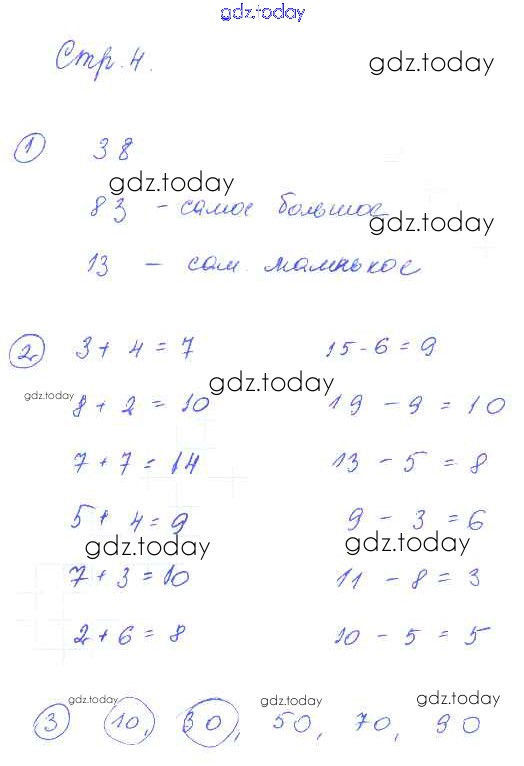 gdz.today
Стр. 4.
gdz.today
1 38
gdz.today
83 - самое большое
gdz.today
13 - сам. маленькое
2 3 + 4 = 7 15 - 6 = 9
gdz.today
gdz.today
8 + 2 = 10 19 - 9 = 10
7 + 7 = 14 13 - 5 = 8
5 + 4 = 9 9 - 3 = 6
gdz.today gdz.today
7 + 3 = 10 11 - 8 = 3
2 + 6 = 8 10 - 5 = 5
gdz.today gdz.today gdz.today
3 10, 30, 50, 70, 90